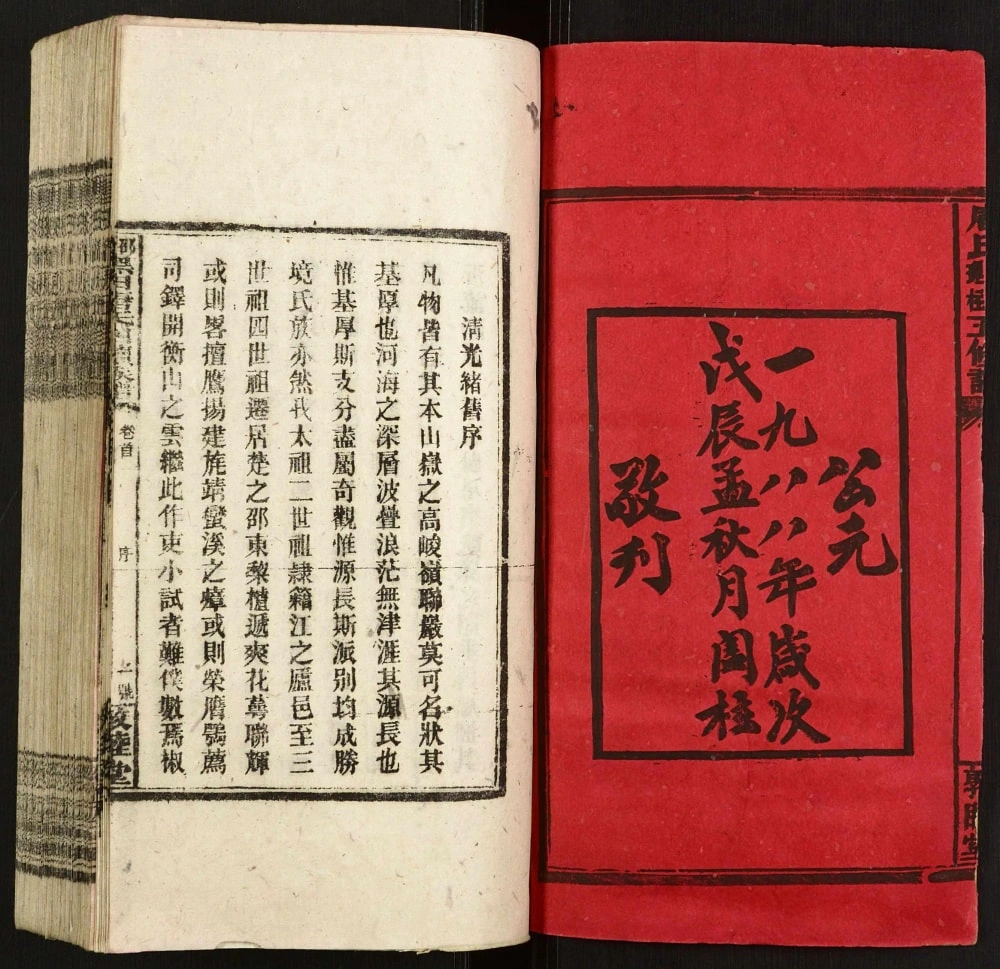 公元
一九八八年歲次
戊辰孟秋月圉柱
敬刋
清光緒舊序
凡物皆有其本山嶽之高峻嶺聯巖莫可名狀其
基厚也河海之深層波疊浪茫無津涯其源長也
惟基厚斯支分盡屬奇觀惟源長斯派别均成勝
境氏族亦然我太祖二世祖隷籍江之廬邑至三
世祖四世祖遷居楚之邵東黎檀遞爽花萼聯輝
或則畧擅鷹揚建旄靖蠻溪之瘴或則榮膺鶚薦
司鐸開衡山之雲繼此作吏小試者難僕數焉椒
卷首
序
睦堂